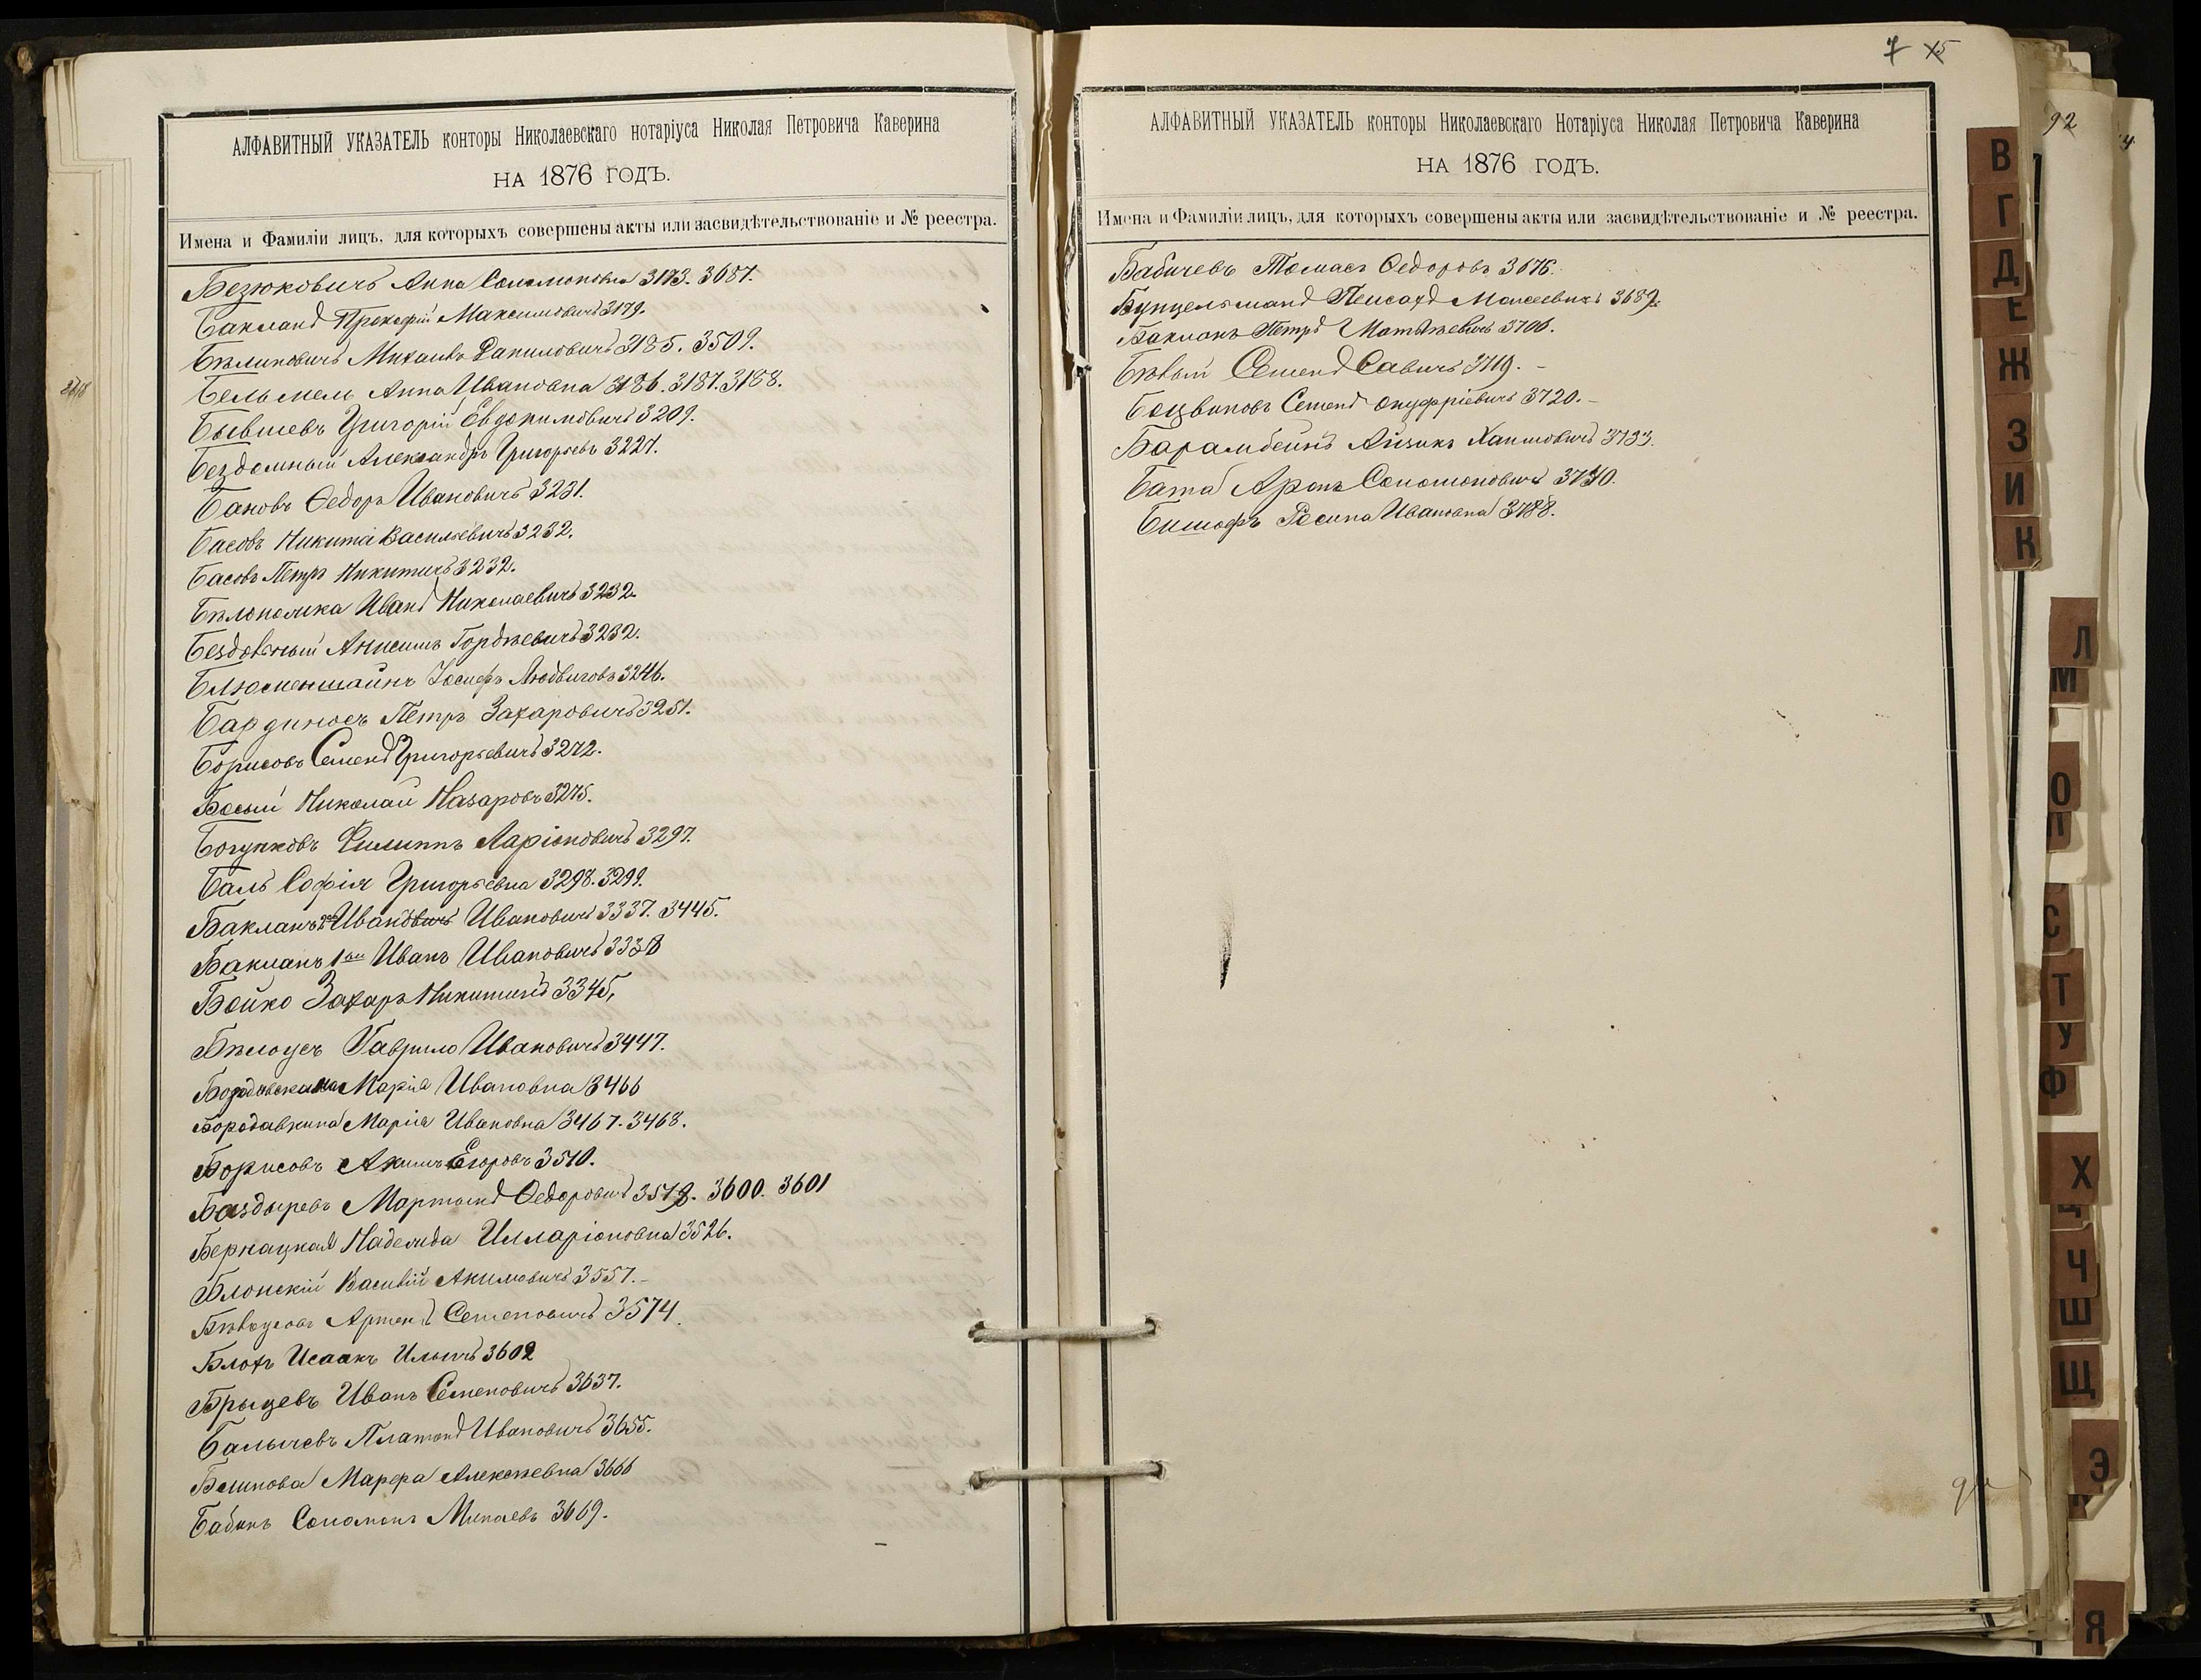 АЛФАВИТНЫЙ УКАЗАТЕЛЬ конторы Николаевскаго нотаріуса Николая Петровича Каверина
НА 1876 ГОДЪ.
Имена и Фамиліи лицъ, для которыхъ совершены акты или засвидѣтельствованіе и № реестра.
Безюковичъ Анна Соломоновна 3173. 3687.
Бакланъ Прокофій Максимовичъ 3179.
Бѣлиновичъ Михаилъ Даниловичъ 3185. 3509.
Бельмель Анна Ивановна 3186. 3187. 3188.
Бывшевъ Григорій Евдокимовичъ 3209.
Бездомный Александръ Григорьевъ 3227.
Бановъ Ѳедоръ Ивановичъ 3231.
Басовъ Никита Васильевичъ 3232.
Басовъ Петръ Никитичъ 3232.
Бѣлоножка Иванъ Николаевичъ 3232.
Анисимъ Гордѣевичъ 3232.
Іосифъ Людвиговъ 3246.
Петръ Захаровичъ 3251.
Борисовъ Семенъ Григорьевичъ 3272.
Босый Николай Назаровъ 3275.
Богунковъ Филиппъ Ларіоновичъ 3297.
Баль Софія Григорьевна 3298. 3299.
Бакланъ Ивановичъ Ивановичъ 3337. 3445.
Бакланъ 1ый Иванъ Ивановичъ 3338
Бойко Захаръ Никитичъ 3345,
Бѣлоусъ Гаврило Ивановичъ 3447.
Марія Ивановна 3466
Бородавкина Марія Ивановна 3467. 3468.
Борисовъ Акимъ Егоровъ 3510.
Баздыревъ Мартынъ Ѳедоровичъ 3518. 3600. 3601
Бернацкая Надежда Илларіоновна 3526.
Блонскій Василій Акимовичъ 3557.-
Бѣлоусовъ Артемъ Семеновичъ 3574.
Блохъ Исаакъ Ильичъ 3602
Брыцевъ Иванъ Семеновичъ 3637.
Балычевъ Платонъ Ивановичъ 3655.
Блинова Марфа Алексѣевна 3666
Бабинъ Соломонъ Минаевъ 3669.
7 
АЛФАВИТНЫЙ УКАЗАТЕЛЬ конторы Николаевскаго Нотаріуса Николая Петровича Каверина
НА 1876 ГОДЪ.
Имена и Фамиліи лицъ, для которыхъ совершены акты или засвидѣтельствованіе и № реестра.
Бабичевъ Томасъ Ѳедоровъ 3676.
Бунцельманъ Пейсахъ Моисеевичъ 3689.
Бакланъ Петръ Матвѣевичъ 3706.
Бѣлый Семенъ Савичъ 3719.-
Боцвиновъ Семенъ Онуфріевичъ 3720.-
Барамбейнъ Айзикъ Хаимовичъ 3733.
Бата Аронъ Соломоновичъ 3740.
Бишофъ Росина Ивановна 3788.
92
В
Г
Д
Е
Ж
З
И
К
Л
М
О
П
С
Т
У
Ф
Х
Ц
Ч
Ш
Щ
Э
Я